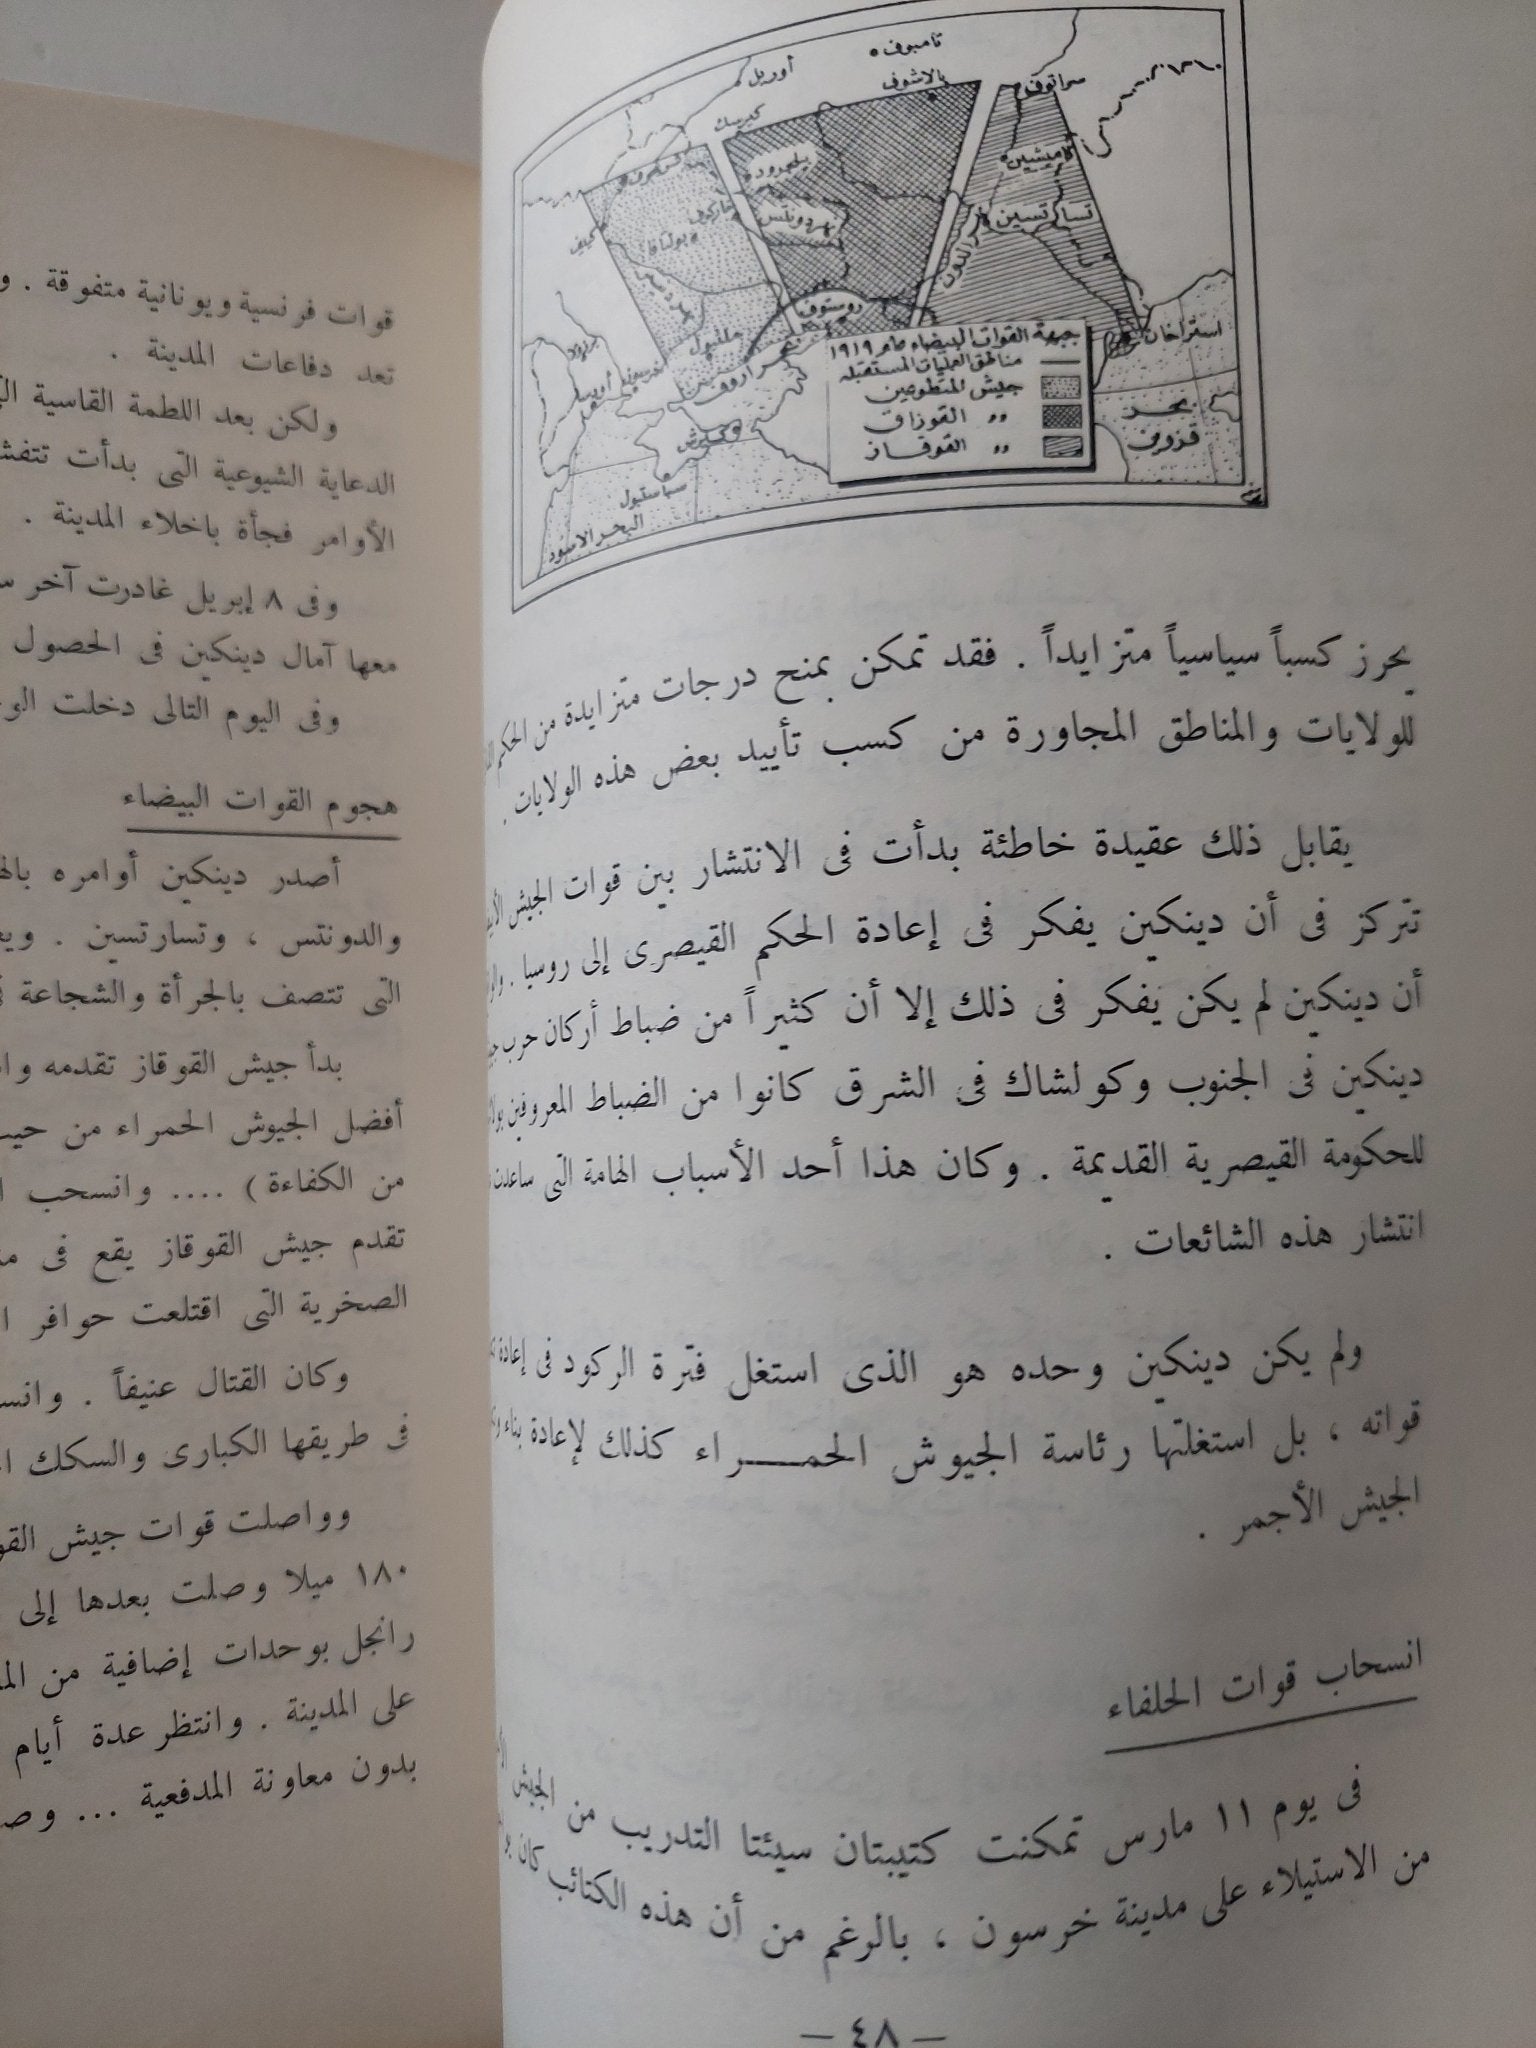 تامبوف
بالاشوف
أوريل
كيرسك
سراتوف
كامشين
بيلجرود
نهر دونتس
خاركوف
بولتافا
كييف
تسارتسين
نهر الدون
روستوف
استراخان
أوديسا
بحر آزوف
بحر
قزوين
سباستبول
البحر الاسود
جبهة القوات البيضاء عام ١٩١٩
مناطق العمليات المستقبله
جيش المتطوعين
,, القوزاق
,, القوقاز
يحرز كسباً سياسياً متزايداً . فقد تمكن بمنح درجات متزايدة من الحكم
للولايات والمناطق المجاورة من كسب تأييد بعض هذه الولايات .
يقابل ذلك عقيدة خاطئة بدأت فى الانتشار بين قوات الجيش
تتركز فى أن دينكين يفكر فى إعادة الحكم القيصرى إلى روسيا .
أن دينكين لم يكن يفكر فى ذلك إلا أن كثيراً من ضباط أركان حرب
دينكين فى الجنوب وكولشاك فى الشرق كانوا من الضباط المعروفين
للحكومة القيصرية القديمة . وكان هذا أحد الأسباب الهامة التى ساعدت
انتشار هذه الشائعات .
ولم يكن دينكين وحده هو الذى استغل فترة الركود فى إعادة
قواته ، بل استغلتها رئاسة الجيوش الحمـــراء كذلك لإعادة بناء
الجيش الأجمر .
انسحاب قوات الحلفاء
فى يوم ١١ مارس تمكنت كتيبتان سيئتا التدريب من الجيش
من الاستيلاء على مدينة خرسون ، بالرغم من أن هذه الكتائب كان
— ٤٨ —
قوات فرنسية ويونانية متفوقة .
تعد دفاعات المدينة .
ولكن بعد اللطمة القاسية
الدعاية الشيوعية التى بدأت
الأوامر فجأة باخلاء المدينة .
وفى ٨ إبريل غادرت آخر
معها آمال دينكين فى الحصول
وفى اليوم التالى دخلت
هجوم القوات البيضاء
أصدر دينكين أوامره
والدونتس ، وتسارتسين .
التى تتصف بالجرأة والشجاعة
بدأ جيش القوقاز تقدمه
أفضل الجيوش الحمراء من
من الكفاءة ) .... وانسحب
تقدم جيش القوقاز يقع فى
الصخرية التى اقتلعت حوافر
وكان القتال عنيفاً .
فى طريقها الكبارى والسكك
وواصلت قوات جيش
١٨٠ ميلا وصلت بعدها إلى
رانجل بوحدات إضافية من
على المدينة . وانتظر عدة أيام
بدون معاونة المدفعية ...